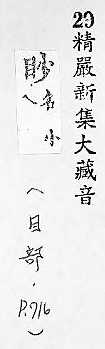 29精嚴新集大藏音
眇名小
(目部,P.716)